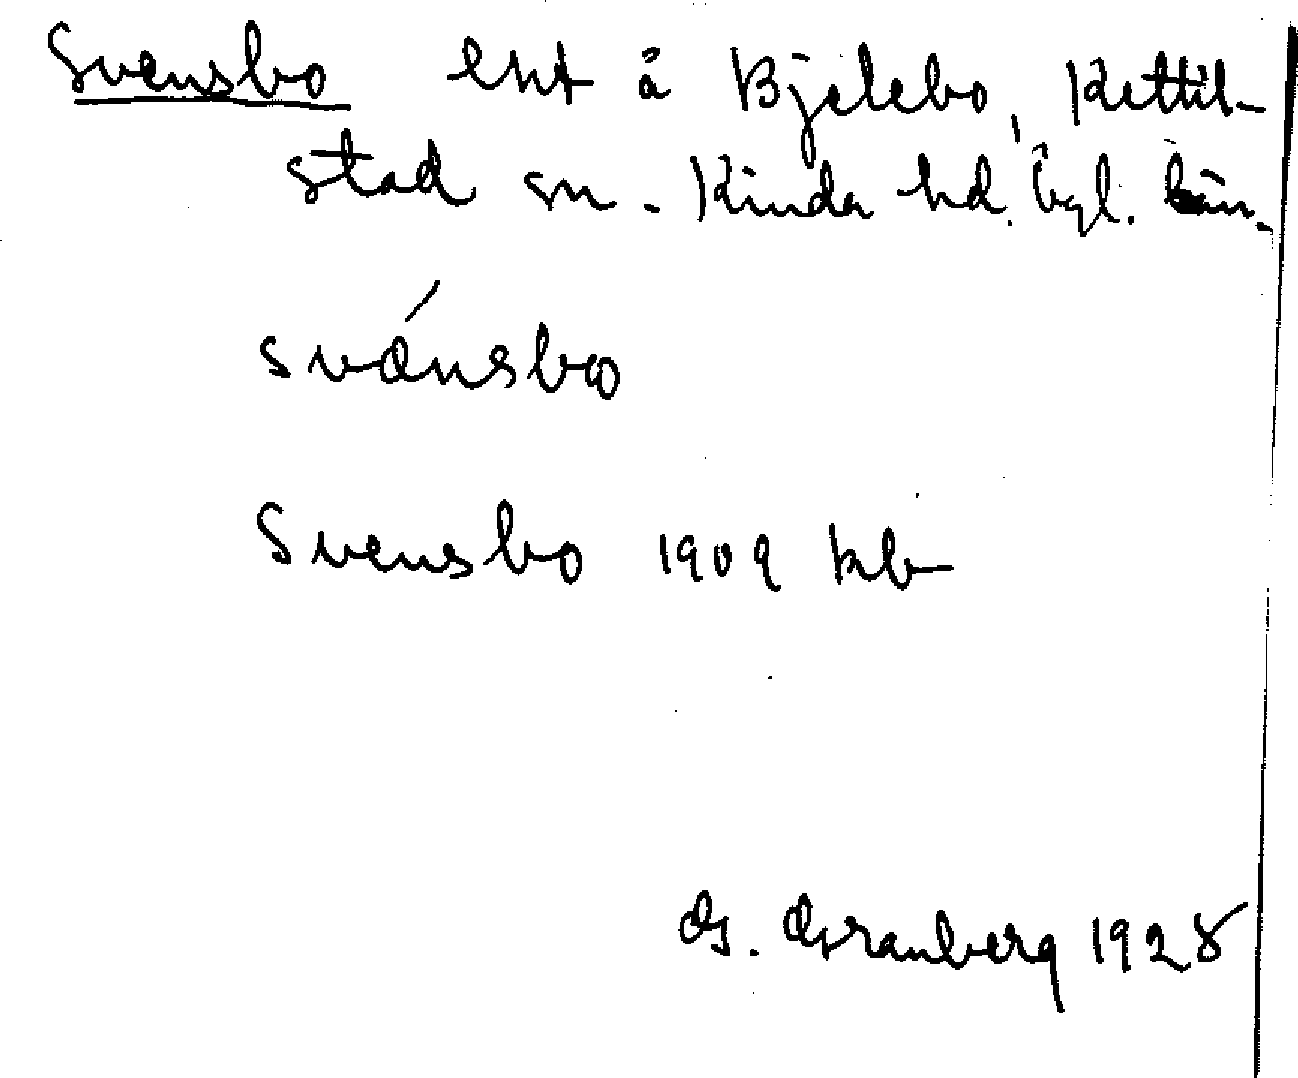 Svensbo lht å Bjelebo, Kettil-
stad sn. Kinda hd. Ögl. län.
svánsbo
Svensbo 1909 kb
G. Granberg 1928